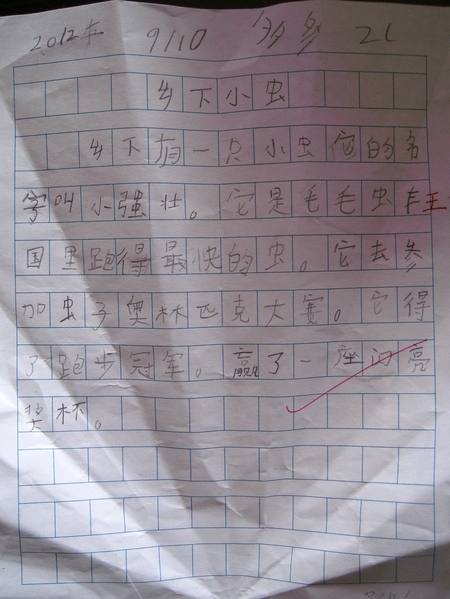 2012年 9/10 多多 21
乡下小虫
乡下有一只小虫它的名
字叫小强壮。它是毛毛虫王
国里跑得最快的虫。它去参
加虫子奥林匹克大赛。它得
了跑步冠军。赢了一座闪亮
奖杯。